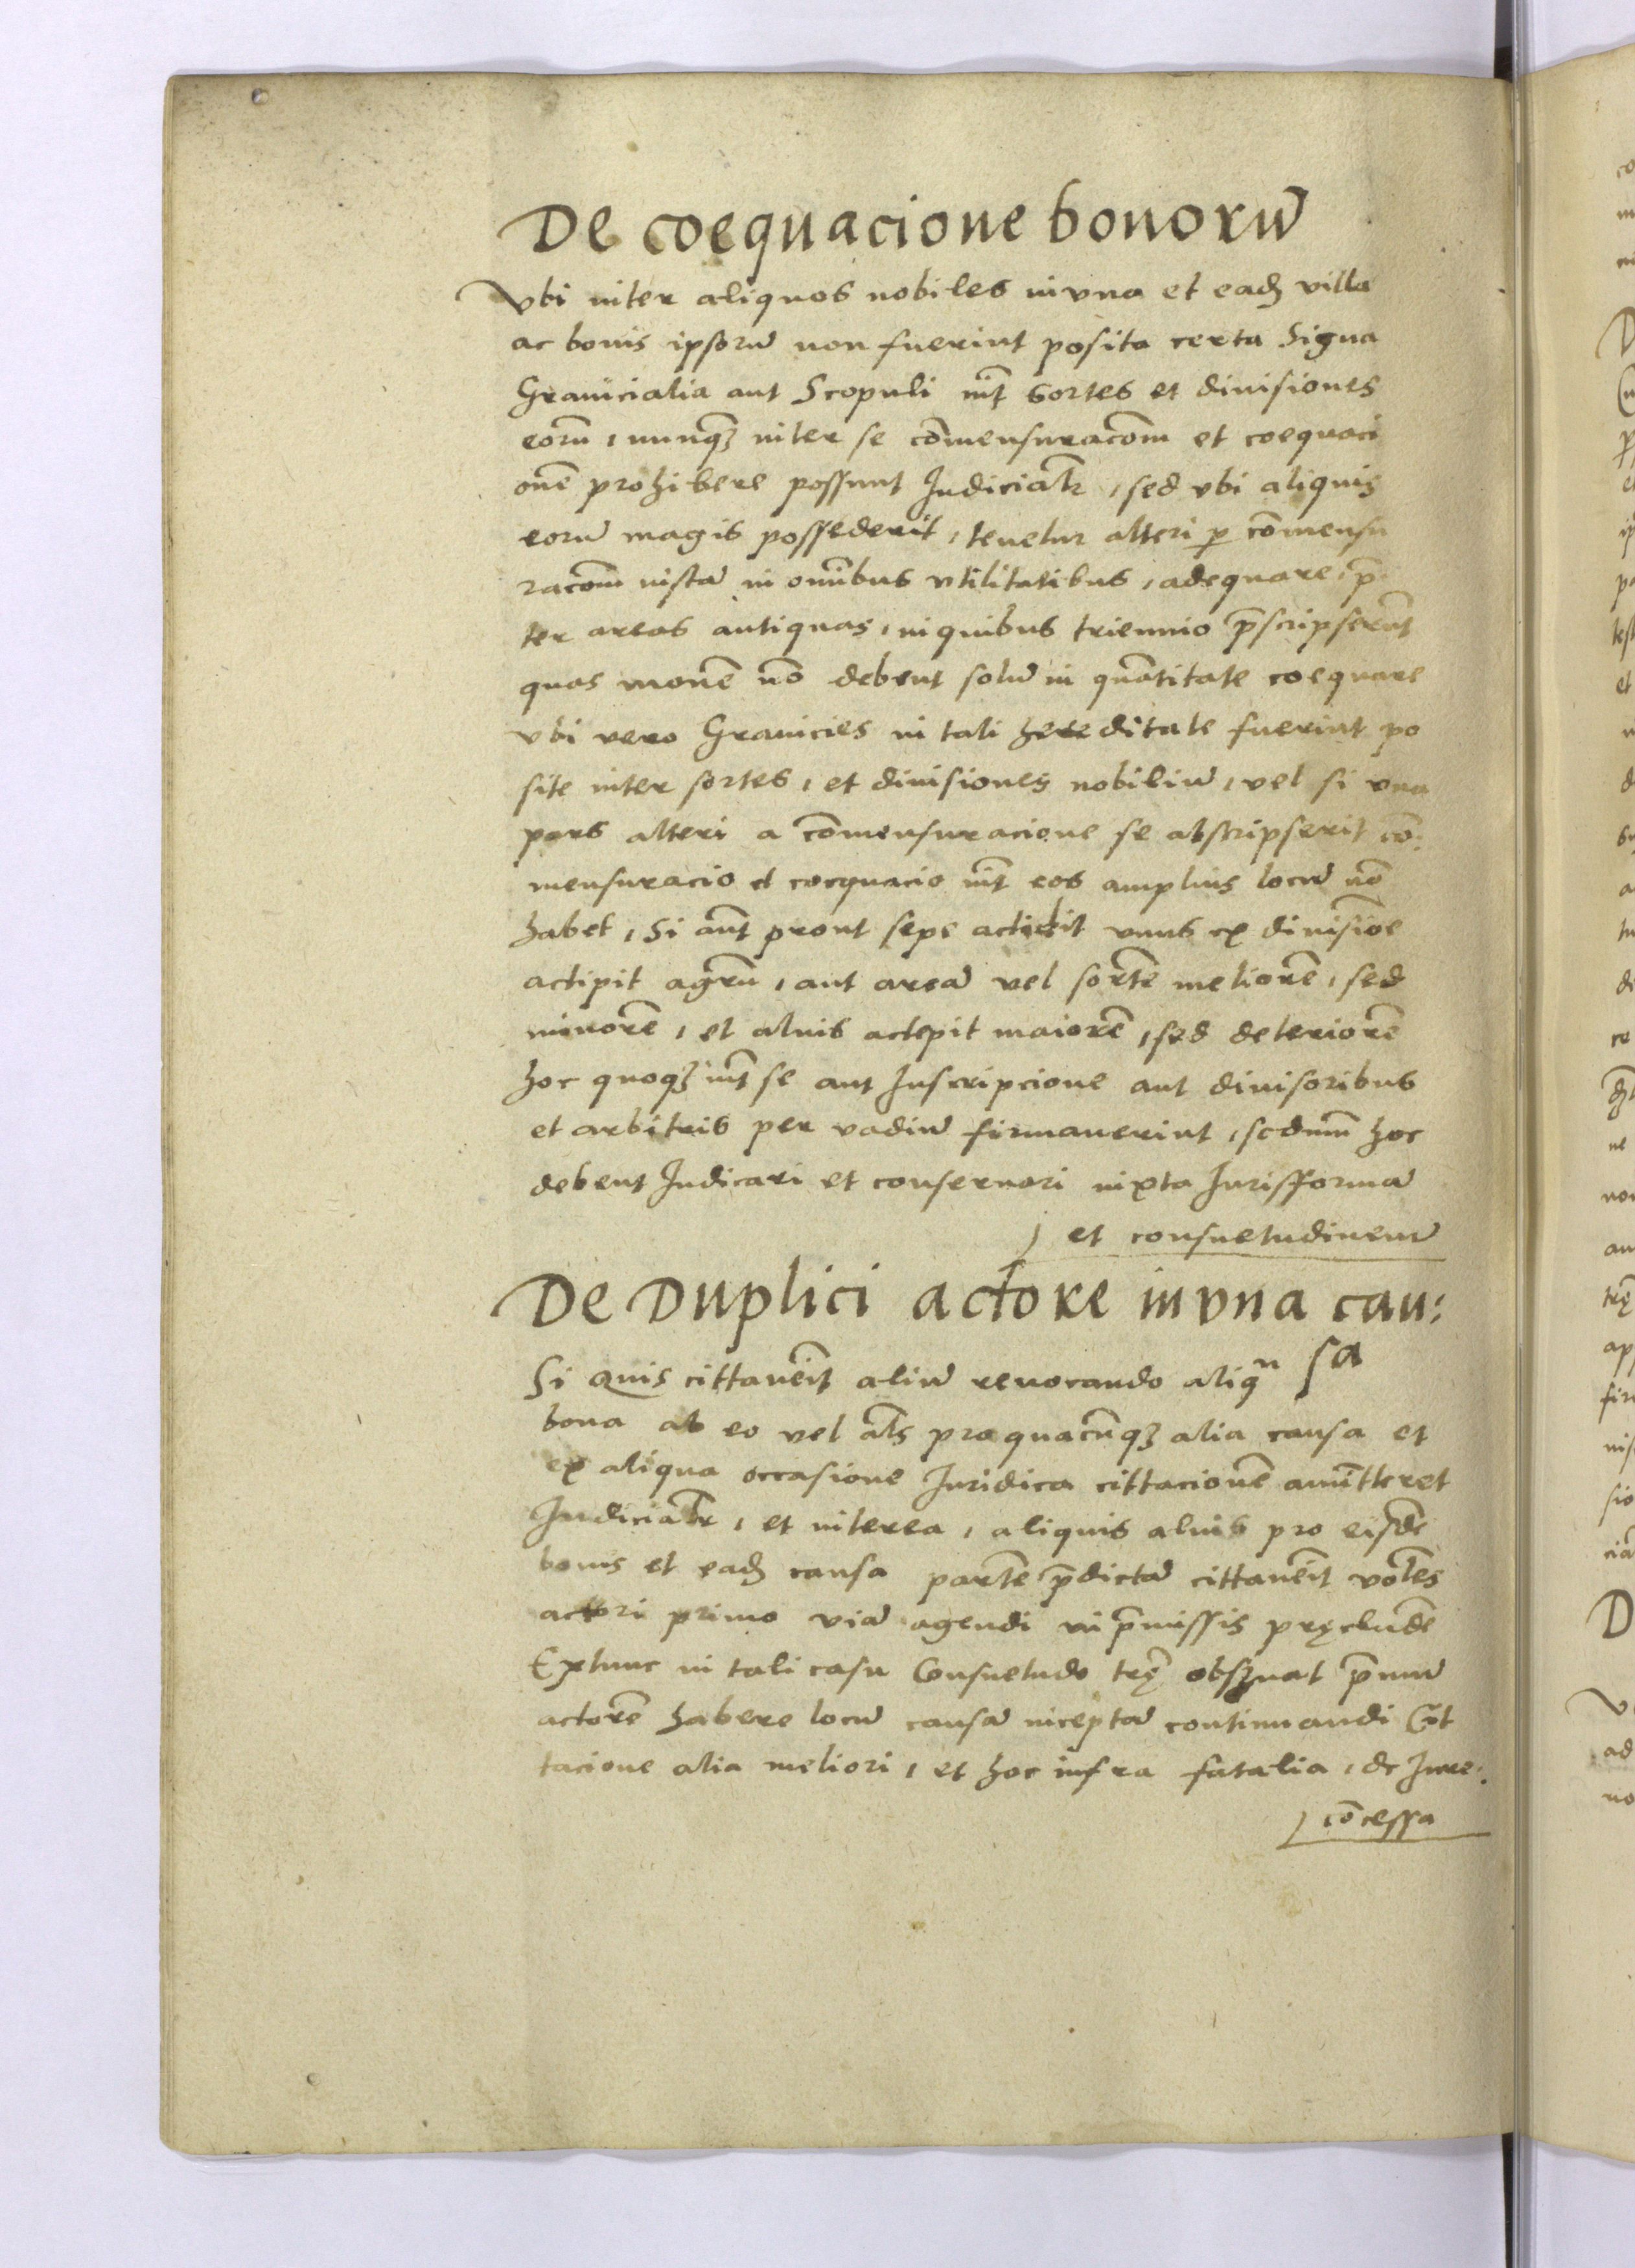 De coequacione bonorū
Vbi inter aliquos nobiles in vna et eadȝ villa
ac bonis ipsorū non fuerint posita certa signa
Granicialia aut Scopuli int̄ sortes et divisiones
eorū, nunqȝ inter se com̄ensuracōm et coequaci
onē prohibere possunt Iudicialr̄, sed vbi aliquis
eorū magis possederit, tenetur alteri ꝑ com̄ensu
racōm iustā in om̄ibus vtilitatibus, adequare, p̄
ter areas antiquas, in quibus triennio p̄scripserūt
quas nō debent solū in quātitate coequare
vbi vero Granicies in tali hereditate fuerint po
site inter sortes, et divisiones nobiliū, vel si vna
pars alteri a com̄ensuracione se abscripserit cō:
mensuracio et coequacio int̄ eos amplius locū nō
habet, Si aūt prout sepe accidit vnus ex divisiōe
accipit agrū, aut areā vel sortē meliorē, sed
minorē, et alius accepit maiorē, sed deteriorē
hoc quoqȝ int̄ se aut Inscripcione aut divisoribus
et arbitris per vadiū firmaverint, scdūm hoc
debent Iudicari et conservari iuxta Iuris formā
et consuetudinem
De Duplici actore in vna cau:
sa
Si Quis cittavēit aliū revocando aliqͣ
bona ab eo vel al̄s pro quacūqȝ alia causa et
ex aliqua occasione Iuridica cittacionē amitteret
Iudicialr̄, et interea, aliquis alius pro eisdē
bonis et eadȝ causa partē p̄dictā cittavēit volēs
actori primo viā agendi in p̄missis pręcludē
Extunc in tali casu Consuetudo trę̄ obsȝuat p̄mū
actorē habere locū causā inceptā continuandi Cīt
tacione alia meliori, et hoc infra fatalia, de Iure:
cōcessa